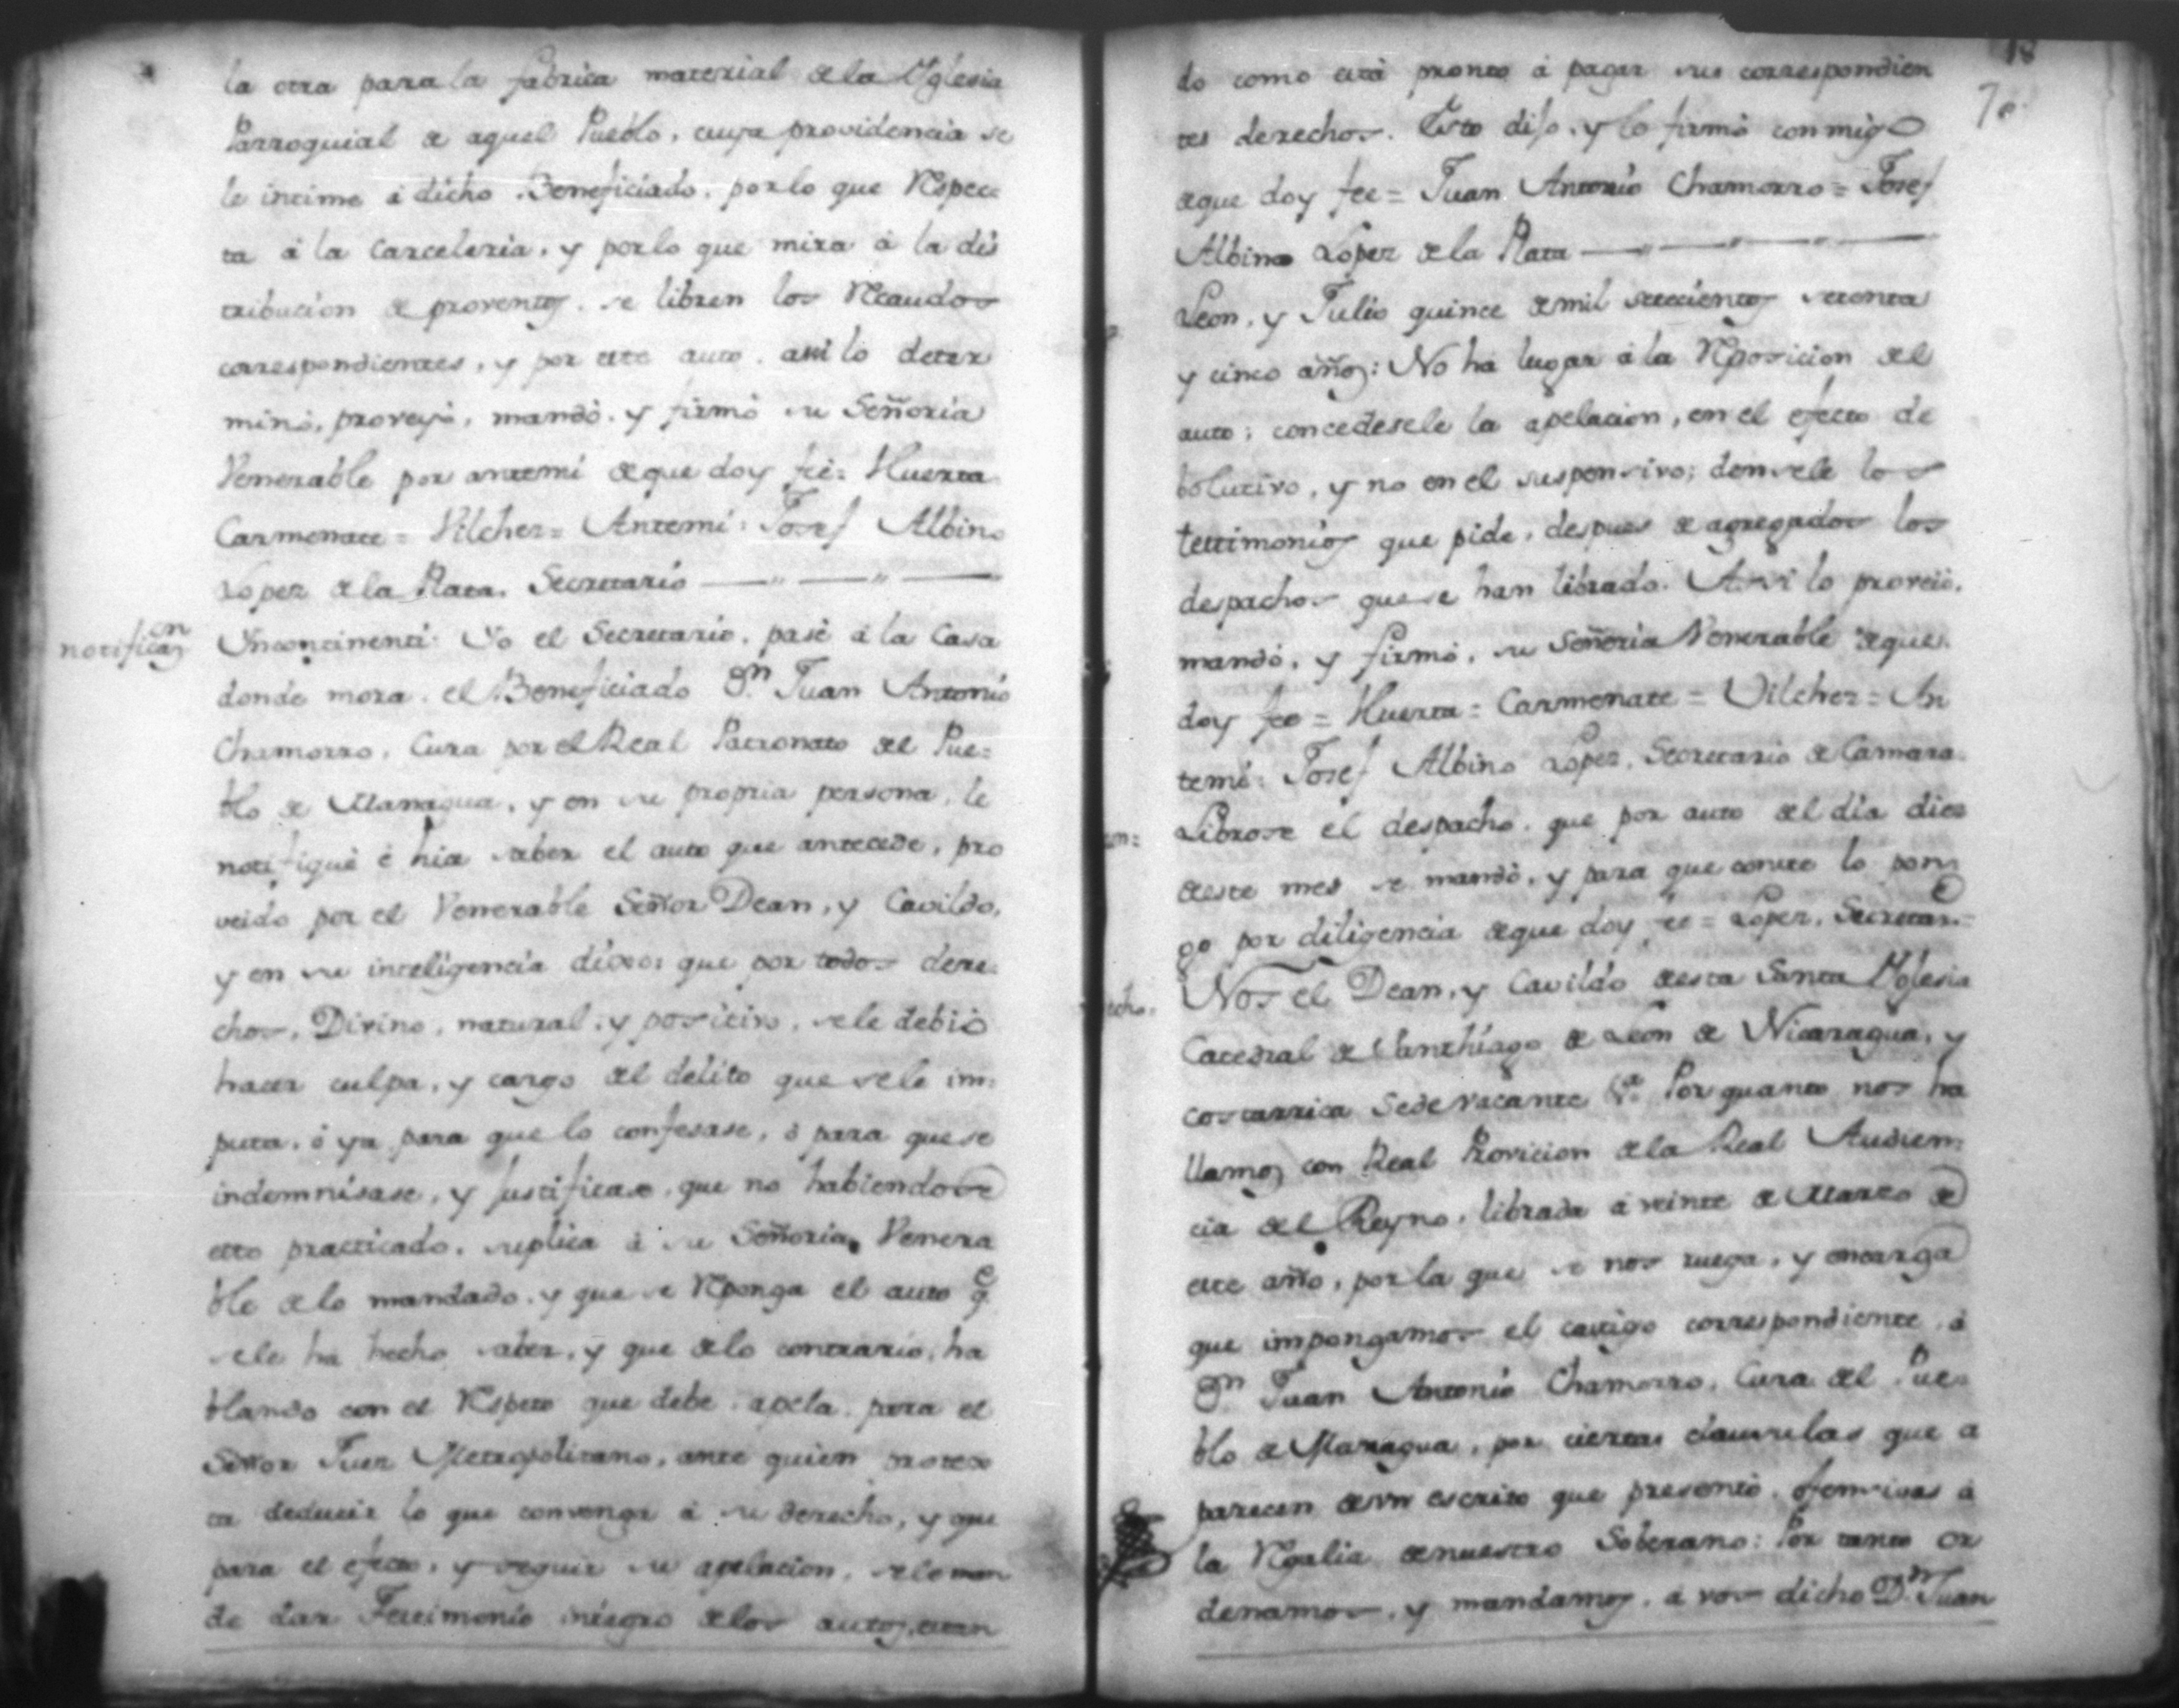 la otra para la fabrica material de la Yglesia
Parroquial de aquel Pueblo, cuya providencia se
le intime á dicho Beneficiado, por lo que Respec=
ta á la Carceleria, y por lo que mira á la dis
tribucion de proventos, se libren los Recaudos
correspondientes, y por este auto, assi lo deter
minó, proveyó, mandó, y firmó su Señoria
Venerable por antemi de que doy feé= Huerta
Carmenate= Vilchez= Antemi: Josef Albino
Lopez de la Plata, Secretario
notificaon
Yncontinenti: Yo el Secretario, pasé á la Casa
donde mora el Beneficiado Dn. Juan Antonio
Chamorro, Cura por el Real Patronato del Pue=
blo de Managua, y en su propria persona, le
notifiqué é hice saber el auto que antecede, pro
veido por el Venerable Señor Dean, y Cavildo,
y en su inteligencia dixo: que por todos dere=
chos, Divino, natural, y positivo, se le debió
hacer culpa, y cargo del delito que se le im=
puta, ó ya para que lo confesase, ó para que se
indemnisase, y justificase, que no habiendose
esto practicado, suplica á su Señoria Venera
ble de lo mandado, y que se Reponga el auto qe
se le ha hecho saber, y que de lo contrario, ha
blando con el Respeto que debe, apela para el
Señor Juez Metropolitano, ante quien protex
ta deducir lo que convenga á su derecho, y que
para el efecto, y seguir su apelacion, se le man
de dar Testimonio integro de los autos, estan
18
70
do como está pronto á pagar sus correspondien
tes derechos. Esto dijo, y lo firmó conmigo
de que doy fee= Juan Antonio Chamorro= Josef
Albino Lopez de la Plata
Leon, y Julio quince de mil setecientos setenta
y cinco años: No ha lugar á la Reposicion del
auto; concedesele la apelacion, en el efecto de
bolutivo, y no en el suspensivo; densele los
testimonios que pide, despues de agregados los
despachos que se han librado. Assi lo proveió,
mandó, y firmó, su Señoria Venerable de que
doy fee= Huerta= Carmenate= Vilchez= An
temi: Josef Albino Lopez, Secretario de Camara
Librose el despacho, que por auto del dia diez
de este mes se mandó, y para que conste lo pon=
go por diligencia de que doy fe= Lopez, Secretaro=
Nos el Dean, y Cavildo de esta Santa Yglesia
Catedral de Santhiago de Leon de Nicaragua, y
Costarrica Sedevacante &a. Por quanto nos ha
llamos con Real Provicion de la Real Audien=
cia del Reyno, librada á veinte de Marzo de
este año, por la que se nos ruega, y encarga
que impongamos el castigo correspondiente á
Dn. Juan Antonio Chamorro, Cura del Pue=
blo de Managua, por ciertas clausulas que a
parecen de un escrito que presentó, ofensivas á
la Regalia de nuestro Soberano: Por tanto or
denamos, y mandamos, á vos dicho Dn. Juan